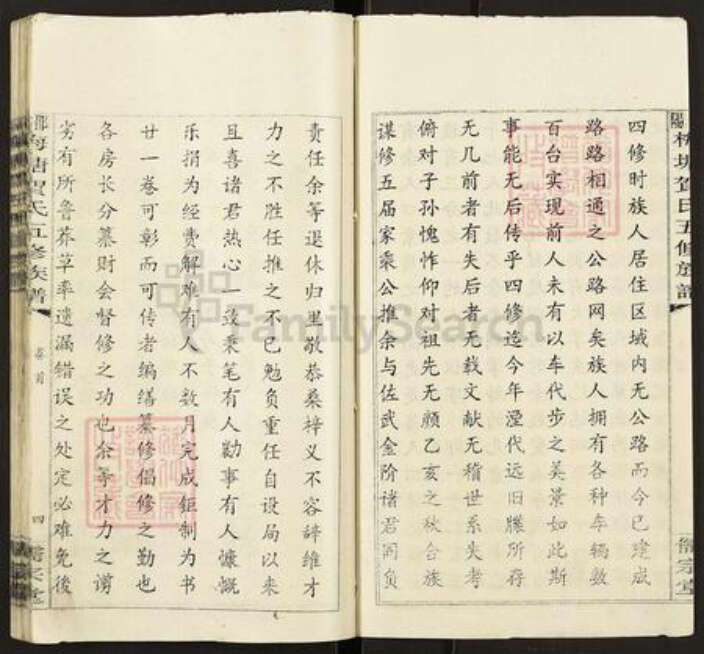 四修时族人居住区域内无公路而今已建成
路路相通之公路网矣族人拥有各种车辆数
百台实现前人未有以车代步之美景如此斯
事能无后传乎四修迄今年湮代远旧牒所存
无几前者有失后者无载文献无稽世系失考
俯对子孙愧怍仰对祖先无颜乙亥之秋合族
谋修五届家乘公推余与佐武金阶诸君同负
责任余等退休归里敬恭桑梓义不容辞维才
力之不胜任推之不已勉负重任自设局以来
且喜诸君热心一致秉笔有人勷事有人慷慨
乐捐为经费解难有人不数月完成钜制为书
廿一卷可彰而可传者编缮纂修倡修之勤也
各房长分纂财会督修之功也余等才力之谫
劣有所鲁莽草率遗漏错误之处定必难免後
氏五修族谱
卷首
四
FamilySearch